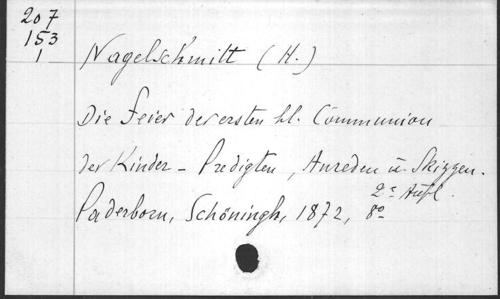 207
153
1
Nagelschmitt (H.)
Die Feier der ersten hl. Communion
der Kinder - Predigten, Anreden u. Skizzen.
2e Aufl.
Paderborn, Schöningh, 1872, 8o